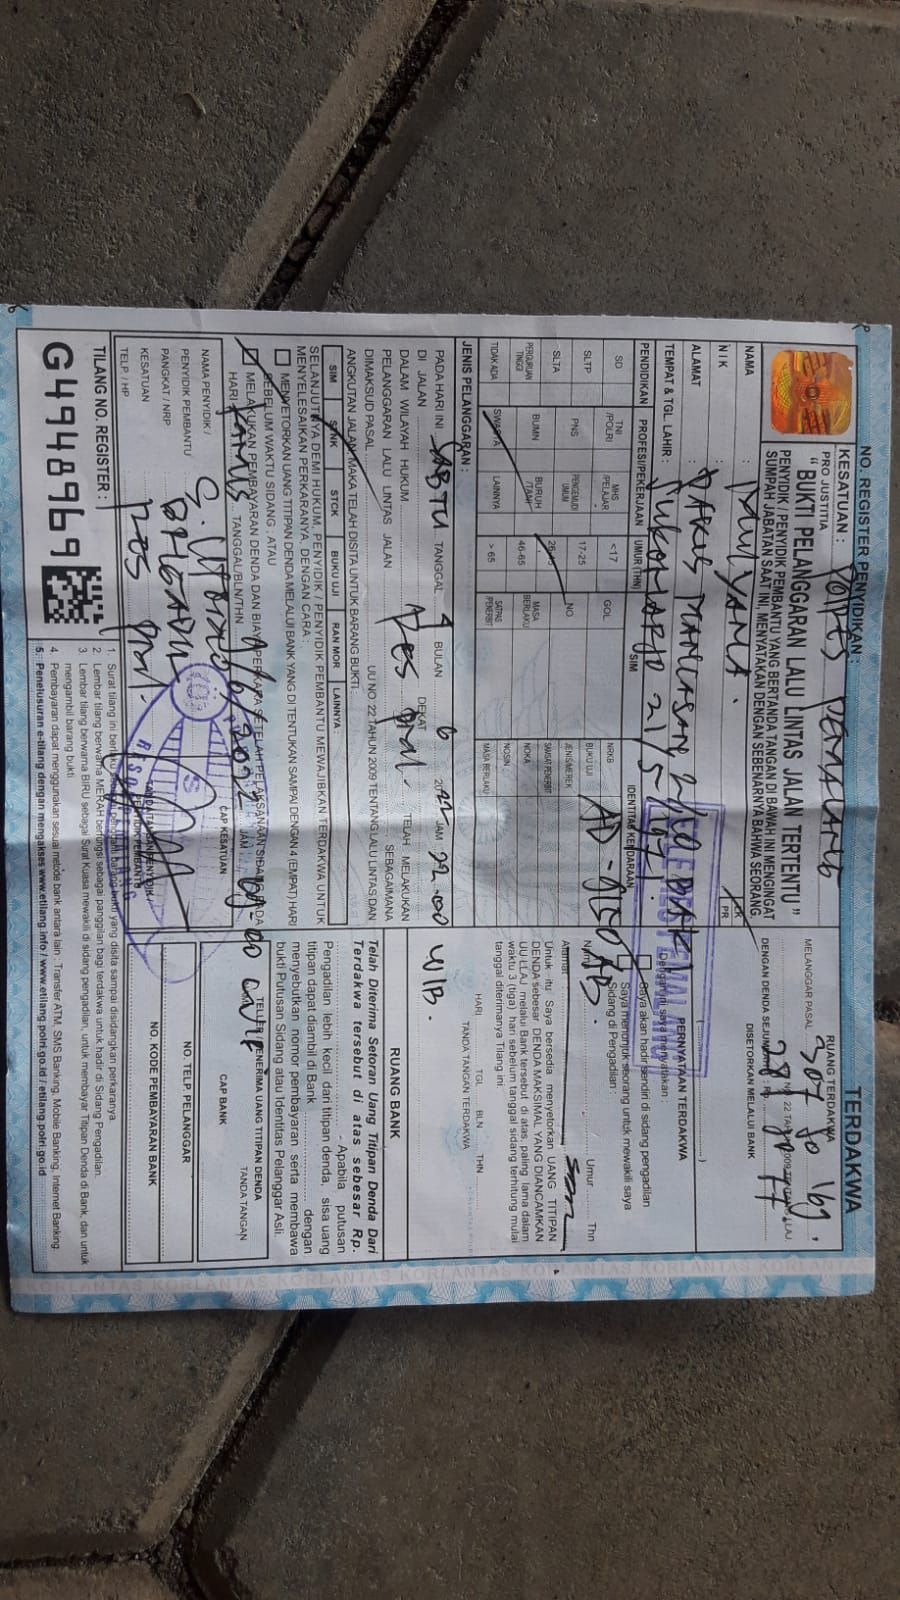 NO. REGISTER PENYIDIKAN :
TERDAKWA
KESATUAN : POLRES PEMALANG
PRO JUSTITIA
" BUKTI PELANGGARAN LALU LINTAS JALAN TERTENTU "
PENYIDIK / PENYIDIK PEMBANTU YANG BERTANDA TANGAN DI BAWAH INI MENGINGAT
SUMPAH JABATAN SAAT INI, MENYATAKAN DENGAN SEBENARNYA BAHWA SEORANG.
NAMA : MULYANA
NIK :
LK
PR
ALAMAT :
TEMPAT & TGL. LAHIR : SUKOHARJO 21/5
PENDIDIKAN
PROFESI/PEKERJAAN
UMUR (THN)
SIM
IDENTITAS KENDARAAN
SD
TNI /POLRI
MHS /PELAJAR
<17
GOL
NRKB
AD-9150 AB
SLTP
PNS
PENGEMUDI UMUM
17-25
BUKU UJI
SLTA
BUMN
BURUH /TANI
26-45
NO
JENIS/MEREK
PERGURUAN TINGGI
46-65
MASA BERLAKU
NOKA
TIDAK ADA
SWASTA
LAINNYA
> 65
SATPAS PENERBIT
NOSIN
MASA BERLAKU
JENIS PELANGGARAN :
PADA HARI INI SABTU TANGGAL 4 BULAN 6 2022 JAM 22.00 WIB.
DI JALAN DEKAT
DALAM WILAYAH HUKUM TELAH MELAKUKAN
PELANGGARAN LALU LINTAS JALAN SEBAGAIMANA
DIMAKSUD PASAL UU NO 22 TAHUN 2009 TENTANG LALU LINTAS DAN
ANGKUTAN JALAN, MAKA TELAH DISITA UNTUK BARANG BUKTI :
SIM
STNK
STCK
BUKU UJI
RAN MOR
LAINNYA :
SELANJUTNYA DEMI HUKUM, PENYIDIK / PENYIDIK PEMBANTU MEWAJIBKAN TERDAKWA UNTUK
MENYELESAIKAN PERKARANYA, DENGAN CARA :
MENYETORKAN UANG TITIPAN DENDA MELALUI BANK YANG DI TENTUKAN SAMPAI DENGAN 4 (EMPAT) HARI
SEBELUM WAKTU SIDANG ; ATAU
MELAKUKAN PEMBAYARAN DENDA DAN BIAYA PERKARA SETELAH PELAKSANAAN SIDANG PADA
HARI KAMIS TANGGAL/BLN/THN JAM 09-00
NAMA PENYIDIK /
PENYIDIK PEMBANTU
PANGKAT / NRP
KESATUAN
TELP. / HP
CAP KESATUAN
TANDA TANGAN PENYIDIK /
PENYIDIK PEMBANTU
TILANG NO. REGISTER :
G4948969
RUANG TERDAKWA
MELANGGAR PASAL 307 Jo 169
DISETORKAN MELALUI BANK
PERNYATAAN TERDAKWA
Dengan ini saya menyatakan :
Saya akan hadir sendiri di sidang pengadilan
Saya menunjuk seorang untuk mewakili saya
Sidang di Pengadilan :
Nama Umur Thn
Alamat
Untuk itu Saya bersedia menyetorkan UANG TITIPAN
DENDA sebesar DENDA MAKSIMAL YANG DIANCAMKAN
UU LLAJ melalui Bank tersebut di atas, paling lama dalam
waktu 3 (tiga) hari sebelum tanggal sidang terhitung mulai
tanggal diterimanya Tilang ini
HARI TGL BLN THN
TANDA TANGAN TERDAKWA
RUANG BANK
Telah Diterima Setoran Uang Titipan Denda Dari
Terdakwa tersebut di atas sebesar Rp.
Apabila putusan
Pengadilan lebih kecil dari titipan denda, sisa uang
titipan dapat diambil di Bank dengan
menyebutkan nomor pembayaran serta membawa
bukti Putusan Sidang atau Identitas Pelanggar Asli.
TELLER / PENERIMA UANG TITIPAN DENDA
CAP BANK
TANDA TANGAN
NO. TELP. PELANGGAR
NO. KODE PEMBAYARAN BANK
1. Surat tilang ini
3. Lembar tilang berwarna BIRU sebagai Surat Kuasa mewakili di sidang pengadilan, untuk membayar Titipan Denda di Bank, dan untuk
mengambil barang bukti
2. Lembar tilang berwarna MERAH berfungsi sebagai panggilan bagi terdakwa untuk hadir di Sidang Pengadilan.
4. Pembayaran dapat menggunakan sesuai metode bank antara lain : Transfer ATM, SMS Banking, Mobile Banking, Internet Banking
5. Penelusuran e-tilang dengan mengakses www.etilang.info / www.etilang.polri.go.id / etilang.polri.go.id